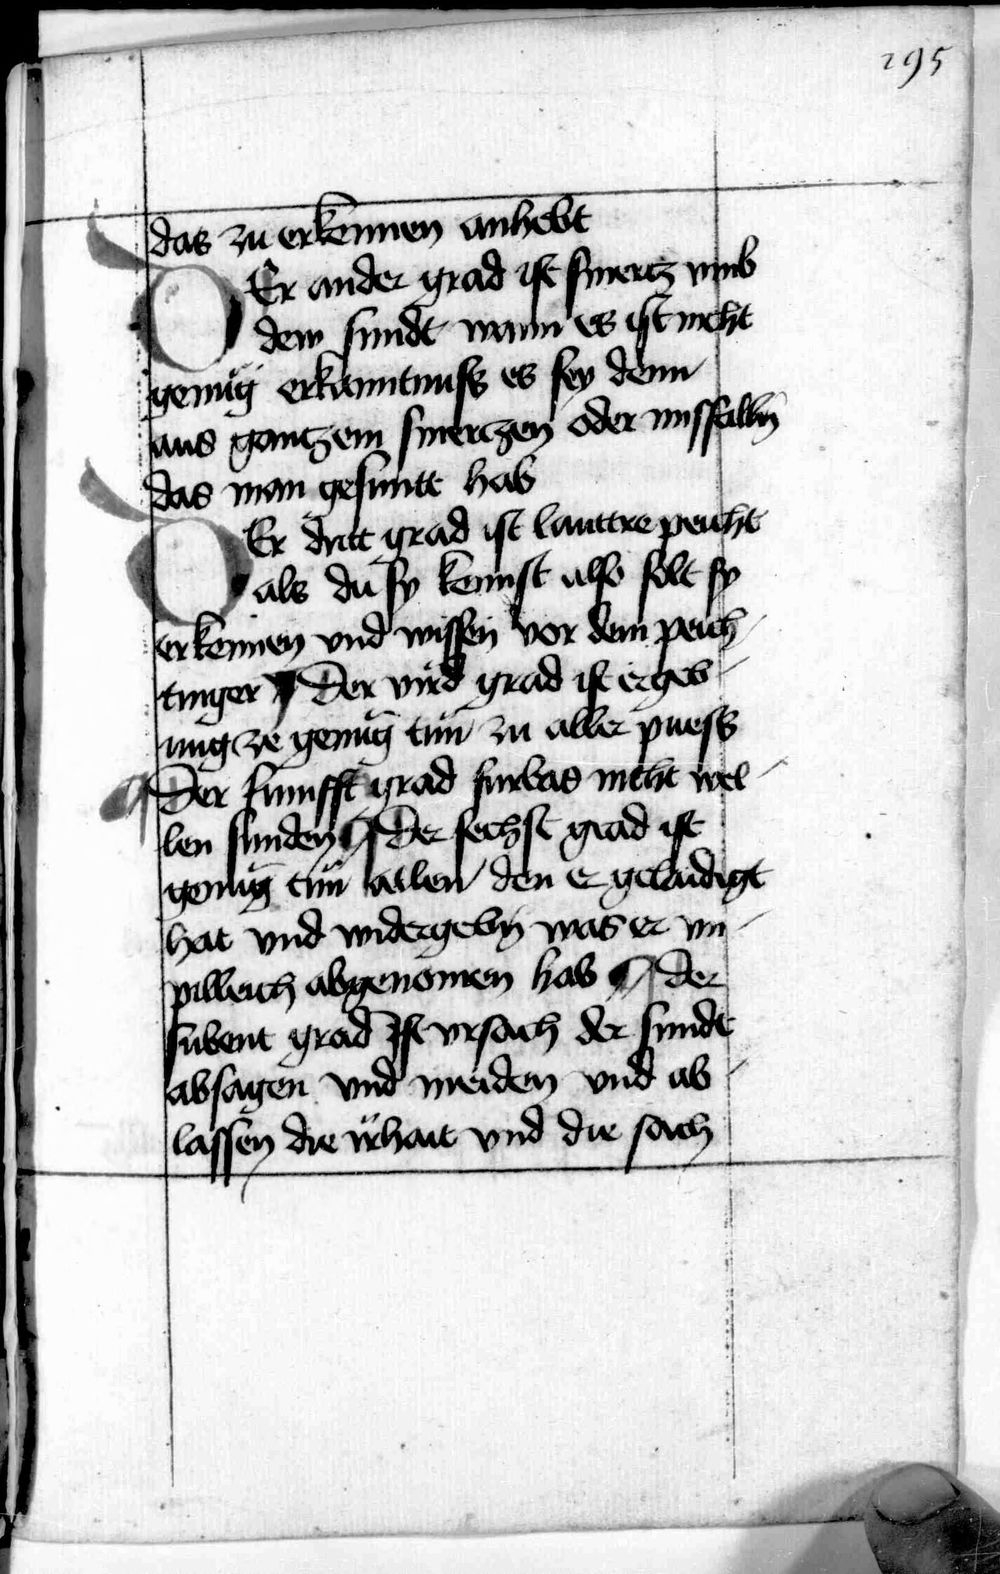 295
das zu erkennen anhebt
DEr ander grad ist smertz vmb
dein sundt wann es ist nicht
genug erkanntnuss es sey denn
aus gantzem smertzen oder missfalln̄
das man gesuntt hab
DEr dritt grad ist lauttre peicht
als du sy kennst also solt sy
erkennen vnd wissen vor dem peich-
tinger ¶ Der vird grad ist ergeb-
ung ze genug tun zu aller puess
¶ Der funfft grad furbas nicht wel-
len sunden ¶ Der sechst grad ist
genug tun allen den er gelaidigt
hat vnd widergebn̄ was er vn-
pilleich abgenomen hab ¶ Der
sibent grad Ist vrsach der sundt
absagen vnd meiden vnd ab-
lassen die irhait vnd die sach